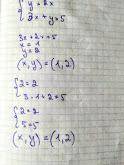 {y = 2x
{3x + y = 5
3x + 2x = 5
x = 1
y = 2
(x, y) = (1, 2)
{2 = 2
{3 · 1 + 2 = 5
{2 = 2
{5 = 5
(x, y) = (1, 2)